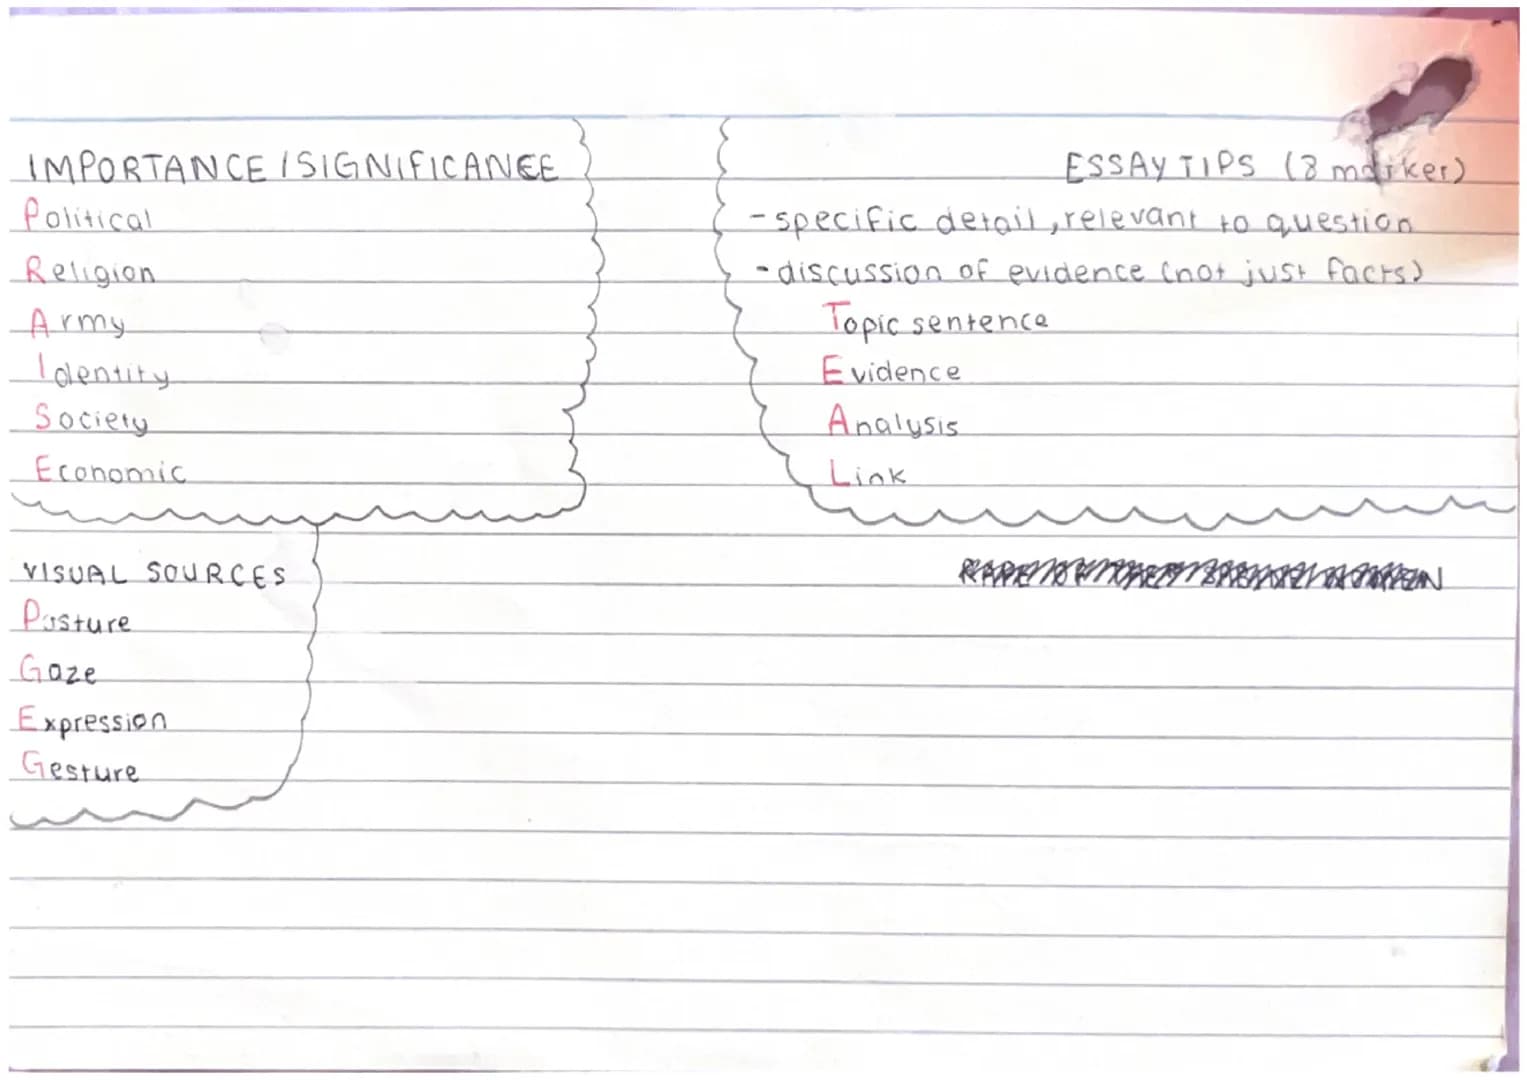 IMPORTANCE / SIGNIFICANCE
Political
Religion
Army
Identity
Society
Economic
ESSAY TIPS (8 marker)
-specific detail, relevant to question
-discussion of evidence (not just facts)
Topic sentence
Evidence
Analysis
Link
VISUAL SOURCES
Posture
Gaze
Expression
Gesture